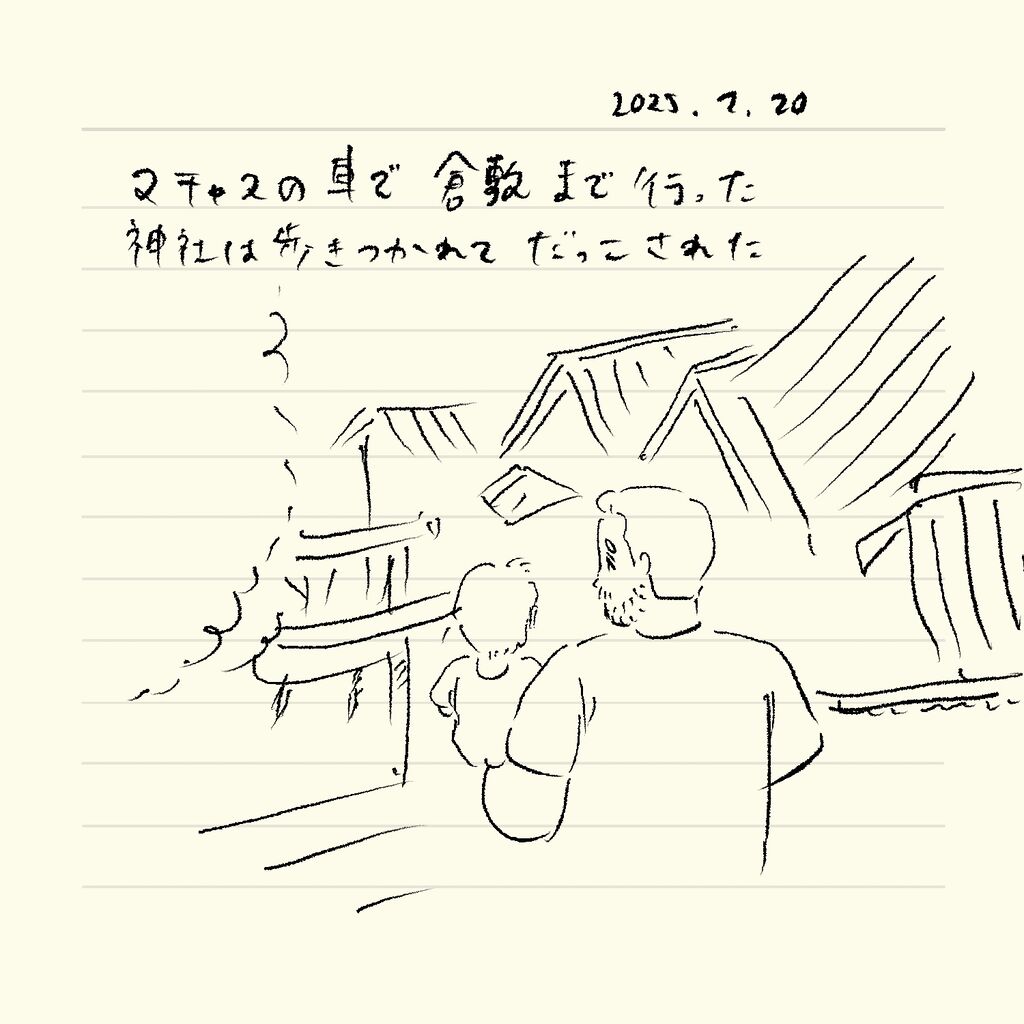 2025.7.20
マチャスの車で 倉敷まで行った
神社は歩きつかれて だっこされた